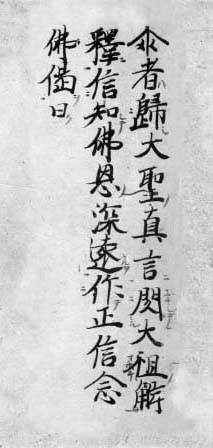 尒者歸大聖真言閲大祖解
釋信知佛恩深遠作正信念
佛偈曰